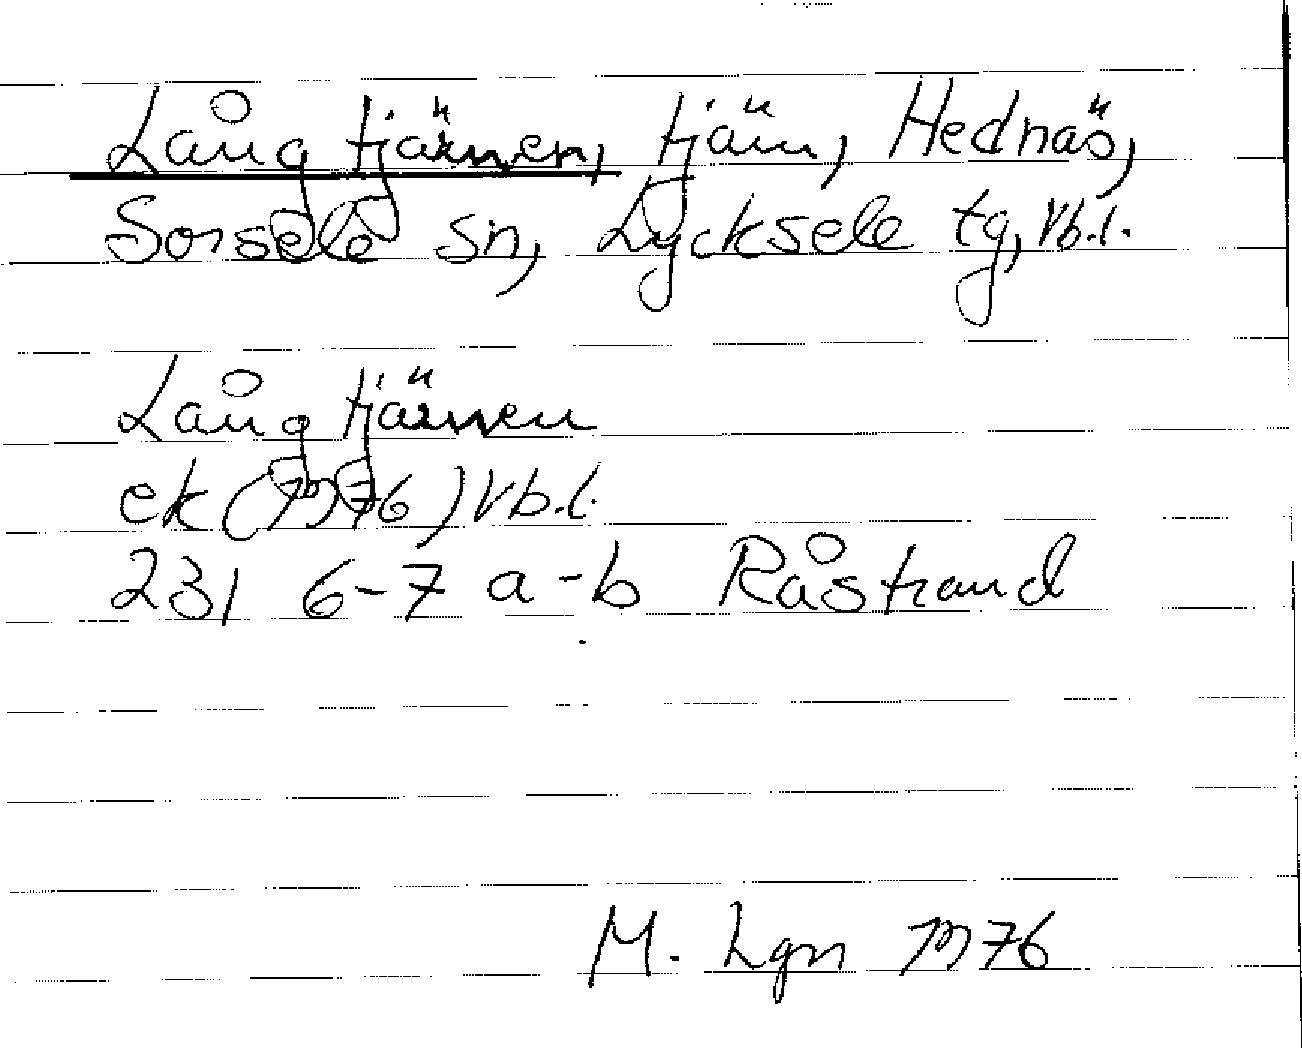 Långtjärnen, tjärn, Hednäs,
Sorsele sn, Lycksele tg, Vb.l.
Långtjärnen
ek (1976) Vb.l.
231 6-7 a-b Råstrand
M. Lgn 1976